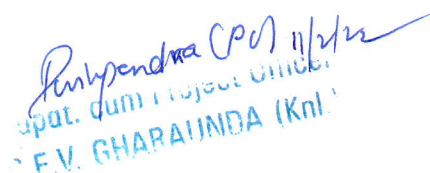 Pushpendra (PO) 11/2/22
cum Project Officer
F.V. GHARAUNDA (Knl.